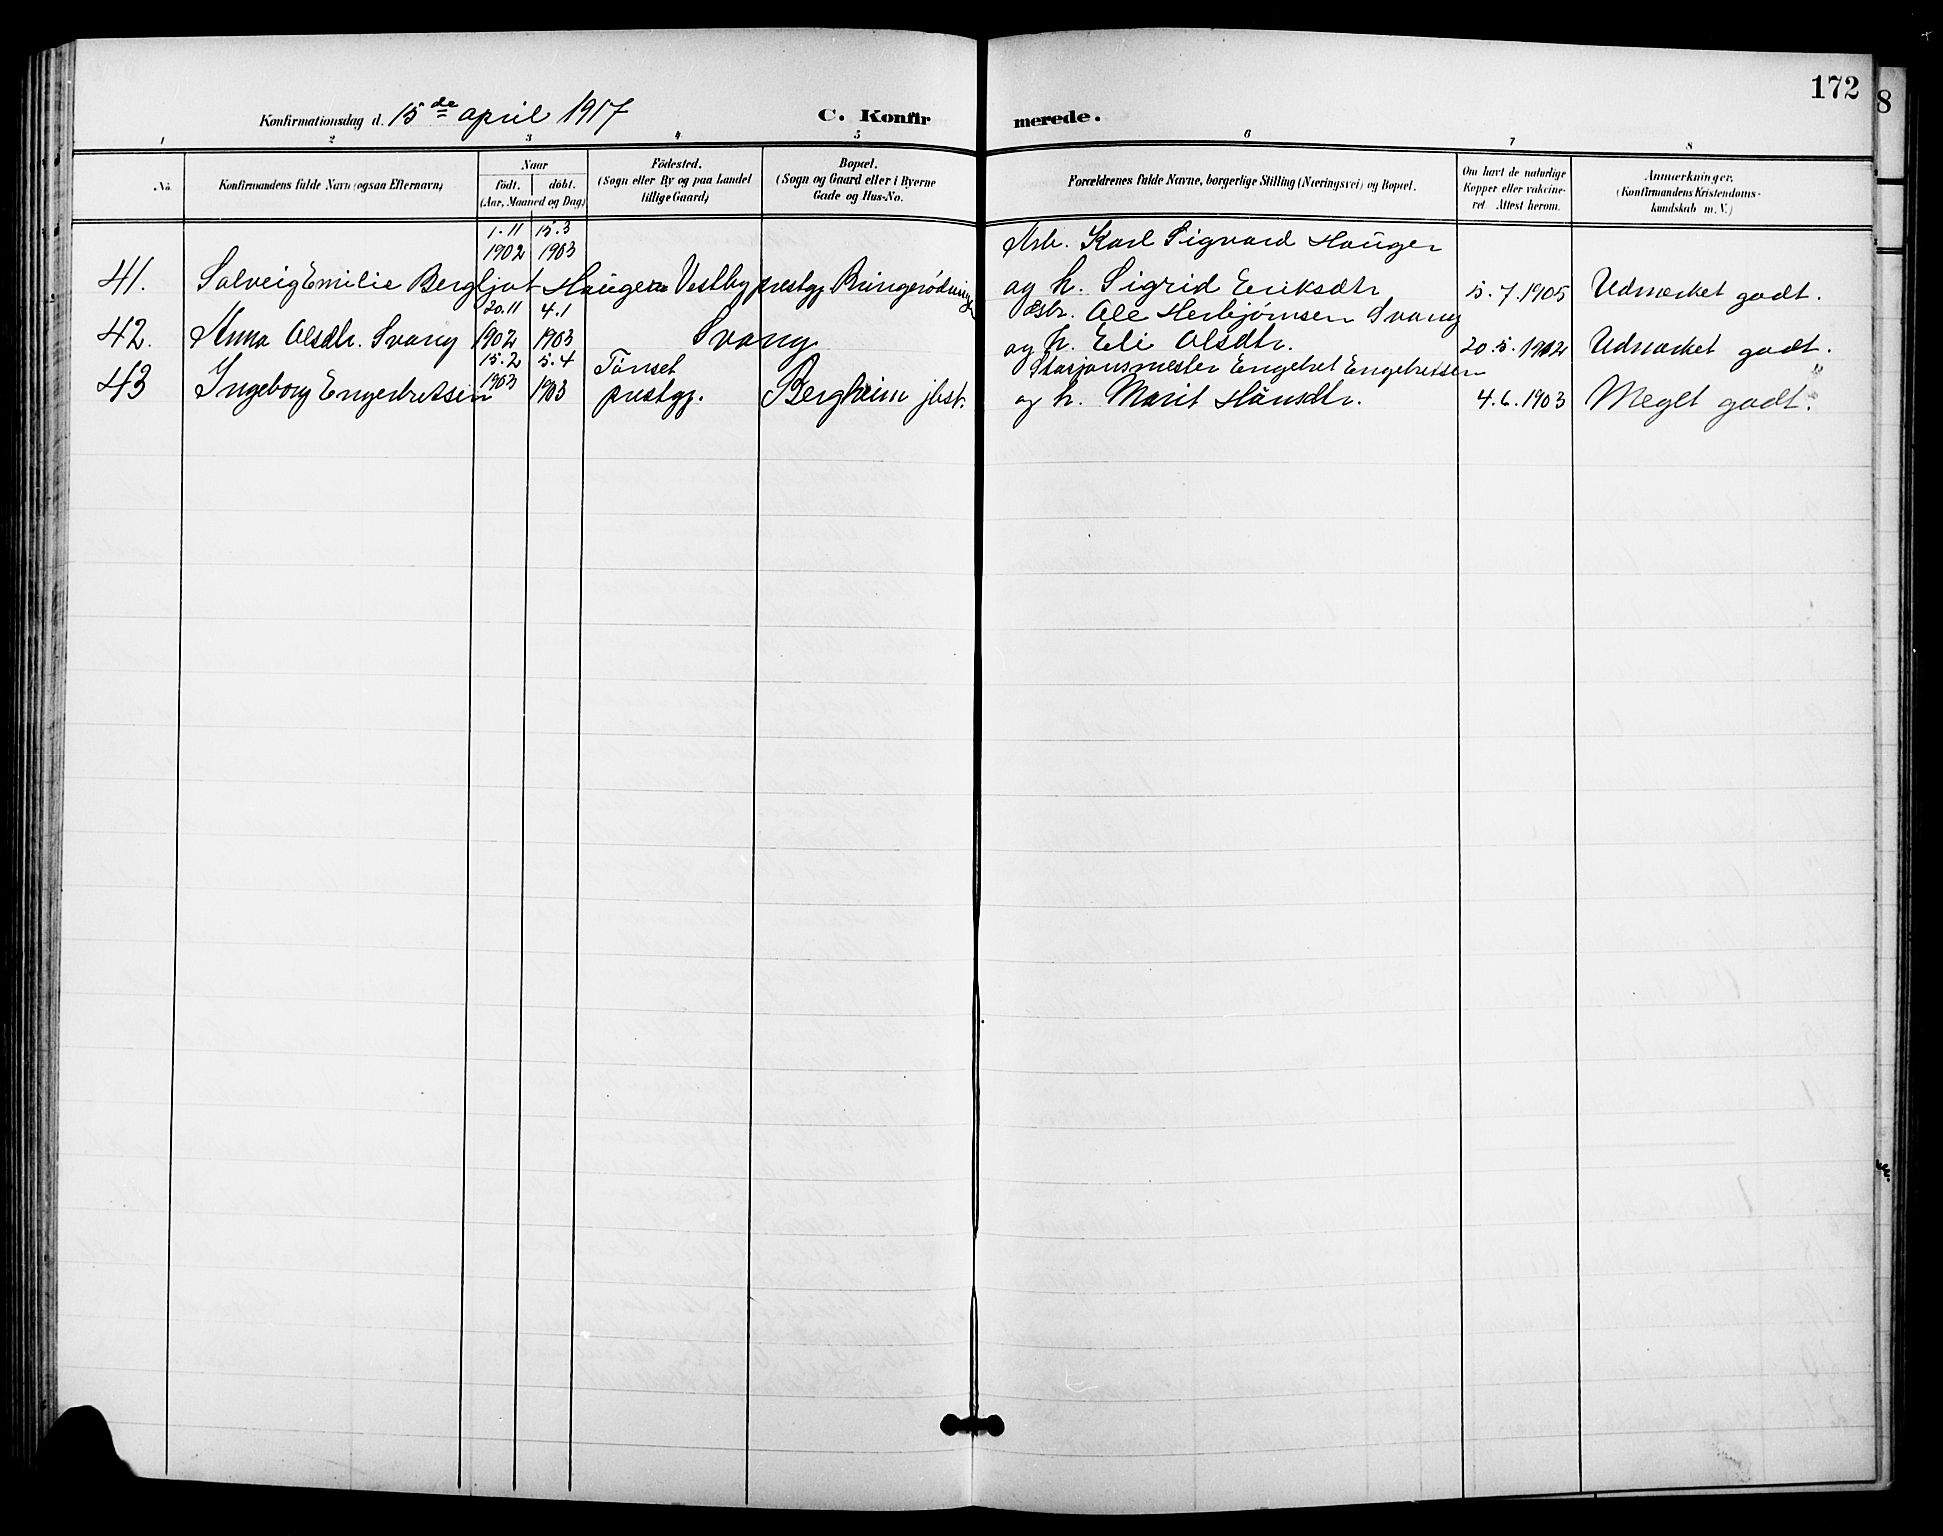 172
Konfirmationsdag d. 15de april 1917
C. Konfirmerede.
1 2 3 4 5 6 7 8
No.
Konfirmandens fulde Navn (ogsaa Efternavn)
Naar
födt. döbt.
(Aar, Maaned og Dag)
Födested.
(Sogn eller By og paa Landet
tillige Gaard)
Bopæl.
(Sogn og Gaard eller i Byerne
Gade og Hus-No.
Forældrenes fulde Navne, borgerlige Stilling (Næringsvei) og Bopæl.
Om havt de naturlige
Kopper eller vakcine-
ret. Attest herom.
Anmærkninger.
(Konfirmandens Kristendoms-
kundskab m. V.)
1.11 15.3
1902 1903
Arb. Karl Sigvard Hauger
41. Solveig Emilie Bergljot Haugen Vestby prestgj. og h. Sigrid Eriksdtr 5.7.1905 Udmerket godt.
20.11 4.1
Ole Herbjørnsen Svang
42. Anna Olsdtr. Svang 1902 1903 Svang og h. Eli Olsdtr. Udmerket godt.
15.2 5.4 Tønset Stasjonsmester Engebret Engebretsen
43 Ingeborg Engebretsen 1903 1903 prestgj. Bergheim jbst. og h. Marit Hansdtr. 4.6.1903 Meget godt.